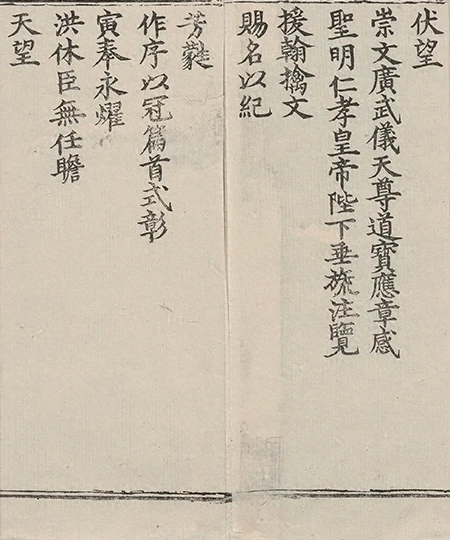 伏望
崇文廣武儀天尊道寳應章感
聖明仁孝皇帝陛下垂旒注覽
援翰摛文
賜名以紀
芳蕤
作序以冠篇首式彰
寅奉永燿
洪休臣無任瞻
天望